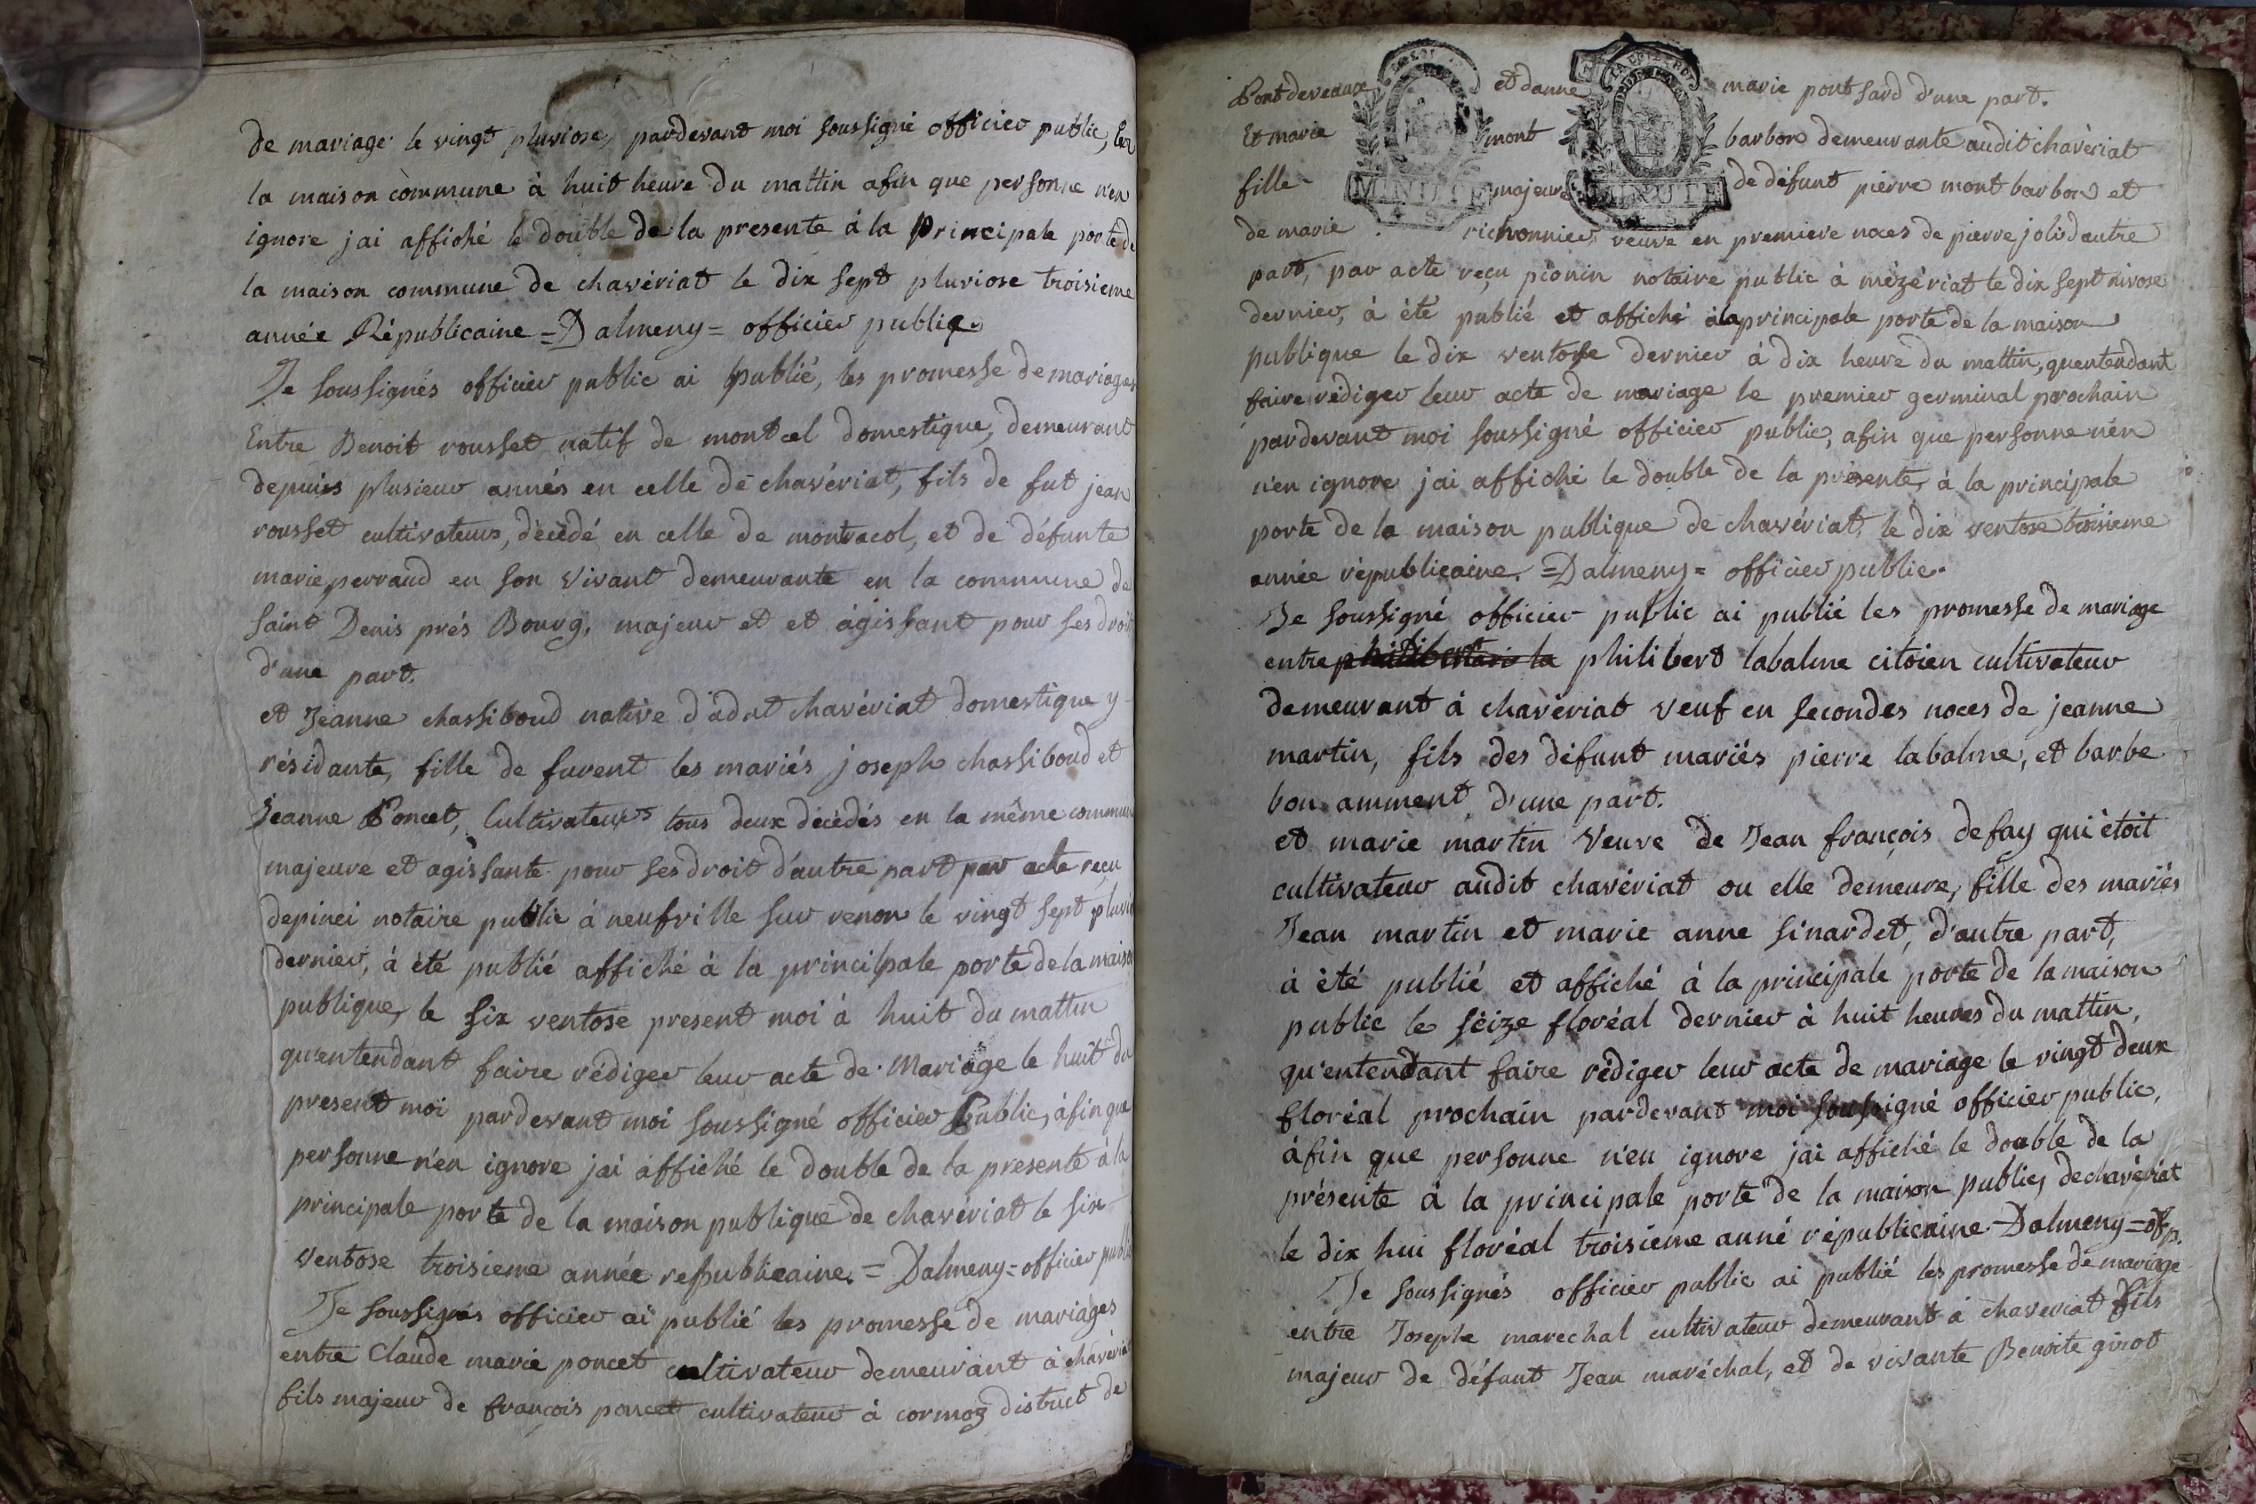 de mariage le vingt pluviose, pardevant moi soussigné officier public, en
la maison commune à huit heure du mattin afin que personne n'en
ignore jai affiché le double de la presente à la principale porte de
la maison commune de chavériat le dix sept pluviose troisieme
année Républicaine = Dalmeny = officier public.
Je soussignés officier public ai publié, les promesse de mariages
Entre Benoit rousset natif de montcel domestique, demeurant
depuis plusieur annés en celle de chavériat, fils de fut jean
rousset cultivateur, décédé en celle de montracol, et de défunte
marie perraud en son vivant demeurante en la commune de
saint Denis prés Bourg, majeur et et agissant pour ses droit
d'une part.
et Jeanne chassiboud native d'adit chavériat domestique y
résidante, fille de furent les mariés joseph chassiboud et
Jeanne Poncet, Cultivateurs tous deux décédés en la même commune
majeure et agissante pour ses droit d'autre part par acte reçu
depinci notaire public à neufville sur renon le vingt sept pluvio
dernier, à été publié affiché à la principale porte de la maison
publique, le six ventose present moi à huit du mattin
qu'entendant faire rédiger leur acte de Mariage le huit du
present moi pardevant moi soussigné officier Public, afin que
personne n'en ignore jai affiché le double de la presente à la
principale porte de la maison publique de chavériat le six
ventose troisieme année republicaine. = Dalmeny = officier public
Je soussignés officier ai publié les promesse de mariages
entre Claude marie poncet cultivateur demeurant à chavéria
fils majeur de françois poncet cultivateur à cormoz district de
Pont deveaux et danne marie pontsard d'une part.
Et marie mont barbon demeurante audit chavériat
fille majeure de défunt pierre mont barbon et
MINUTE MINUTE
de marie richonnier, veuve en premiere noces de pierre joli d'autre
part, par acte reçu pionin notaire public à mézériat le dix sept nivose
dernier, à été publié et affiché à la principale porte de la maison
publique le dix ventose dernier à dix heure du mattin, quentendant
faire rédiger leur acte de mariage le premier germinal prochain
pardevant moi soussigné officier public, afin que personne n'en
n'en ignore jai affiché le double de la présente, à la principale
porte de la maison publique de chavériat, le dix ventose troisieme
année républicaine. = Dalmeny = officier public.
Je soussigné officier public ai publié les promesse de mariage
entre philibert labalme citoien cultivateur
demeurant à chavériat veuf en secondes noces de jeanne
martin, fils des défunt mariés pierre labalme, et barbe
bon amment d'une part.
et marie martin Veuve de Jean françois defay qui étoit
cultivateur audit chavériat ou elle demeure, fille des mariés
Jean martin et marie anne sinardet, d'autre part,
à été publié et affiché à la principale porte de la maison
public le séize floréal dernier à huit heures du mattin,
qu'entendant faire rédiger leur acte de mariage le vingt deux
floréal prochain pardevant moi soussigné officier public,
àfin que personne n'en ignore jai affiché le double de la
présente à la principale porte de la maison public, de chavériat
le dix hui floréal troisieme anné républicaine. Dalmeny = of p.
Je soussignés officier public ai publié les promesse de mariage
entre Joseph marechal cultivateur demeurant à chaveriat fils
majeur de défunt Jean maréchal, et de vivante Benoite girot